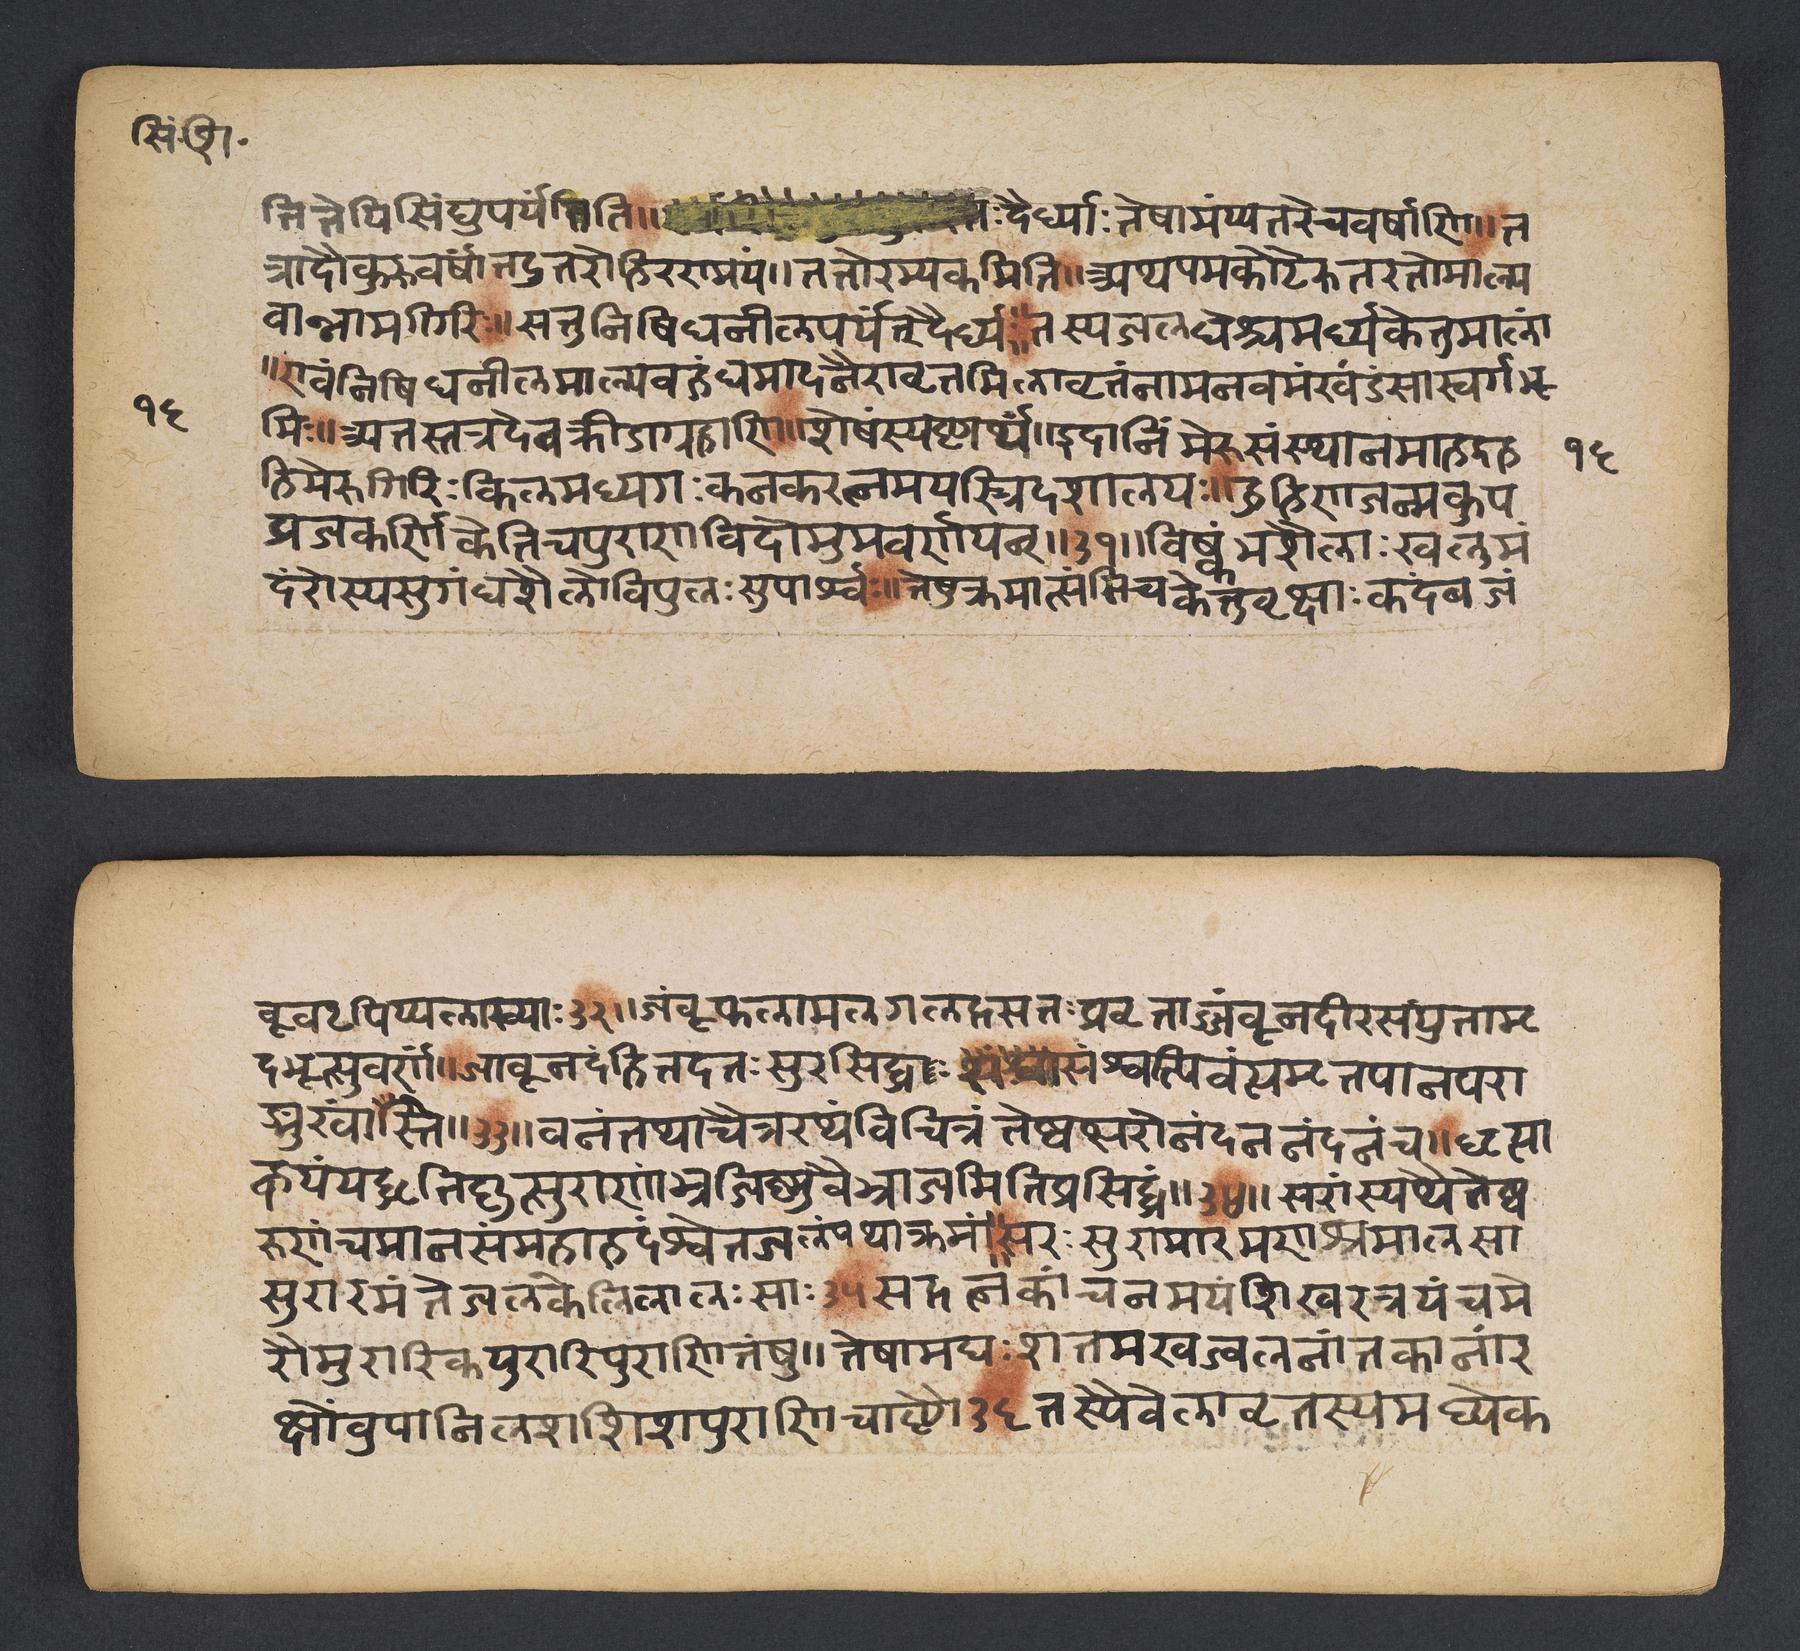 सिं.शि.
तित्तेपिसिंघुपर्यंतिति॥ तः दैर्घ्याः तेषामंप्यतरेचवर्षाणि॥ त
त्रादौकुरुवर्षांतदुत्तरौहिररामयं॥ ततोरम्यकमिति॥ अथपमकोटेरुतरतोमाल्य
वान्नामगिरिः॥ सतुनिषिधनीलपर्यंत्दैर्घ्यः॥ तस्यजलधेश्चमर्घ्यकेतुमालां
॥एवंनिषिधनीलमाल्यवद्गंधमादनैरावृत्तमिलावृत्तंनामनवमंखंडंसास्वर्गभू
मिः॥ अतस्तत्रदेवक्रीडागृहाणि॥ शेषंस्पष्टार्थं॥ इदानिंमेरुसंस्थानमाहइह
१६
१६
हिमेरुगिरिः किलमध्यगः कनकरत्नमयस्त्रिदशालयः॥ द्रुहिणजन्मकुप
द्मजकर्णिकेतिचपुराणविदोमुमवर्णयन्॥३१॥ विष्कंभशैलाः खलुमं
दरोस्यसुगंधशैलोविपुलः सुपार्श्वः॥ तेषुक्रमात्संतिचकेतुवृक्षाः कदंबजं
बूवटपिप्पलाख्याः ३२॥ जंबूफलामलगलद्रसतः प्रवृत्ताजंबूनदीरसंपुतामृ
दभूत्सुवर्णं॥ जांबूनदंहितदतः सुरसिद्धाः संश्वत्पिवंत्यमृतपानपरा
ङ्मुखास्ते॥३३॥ वनंतथाचैत्ररथंविचित्रं तेष्वप्सरोनंदननंदनंच॥ धृत्या
कयंयद्धृतिद्युत्सुराणांभ्रजिष्णुवैभ्राजमितिप्रसिद्धं॥३४॥ सरांस्यथैतेष्व
रुणंचमानसंमहाह्रदंश्वेतजलंपथाक्रमं॥ सरः सुरामारमणश्रमालसा
सुरारमंतेजलकेलिलालः साः ३५ सद्रत्नकांचनमयंशिखरत्रयंचमे
रौमुरारिकपुरारिपुराणितंषु॥ तेषामधः शतमखज्वलनांतकानांर
क्षोंवुपानिलशशिशपुराणिचाष्टौ ३६ तस्यैवेलावृतस्यमध्येक